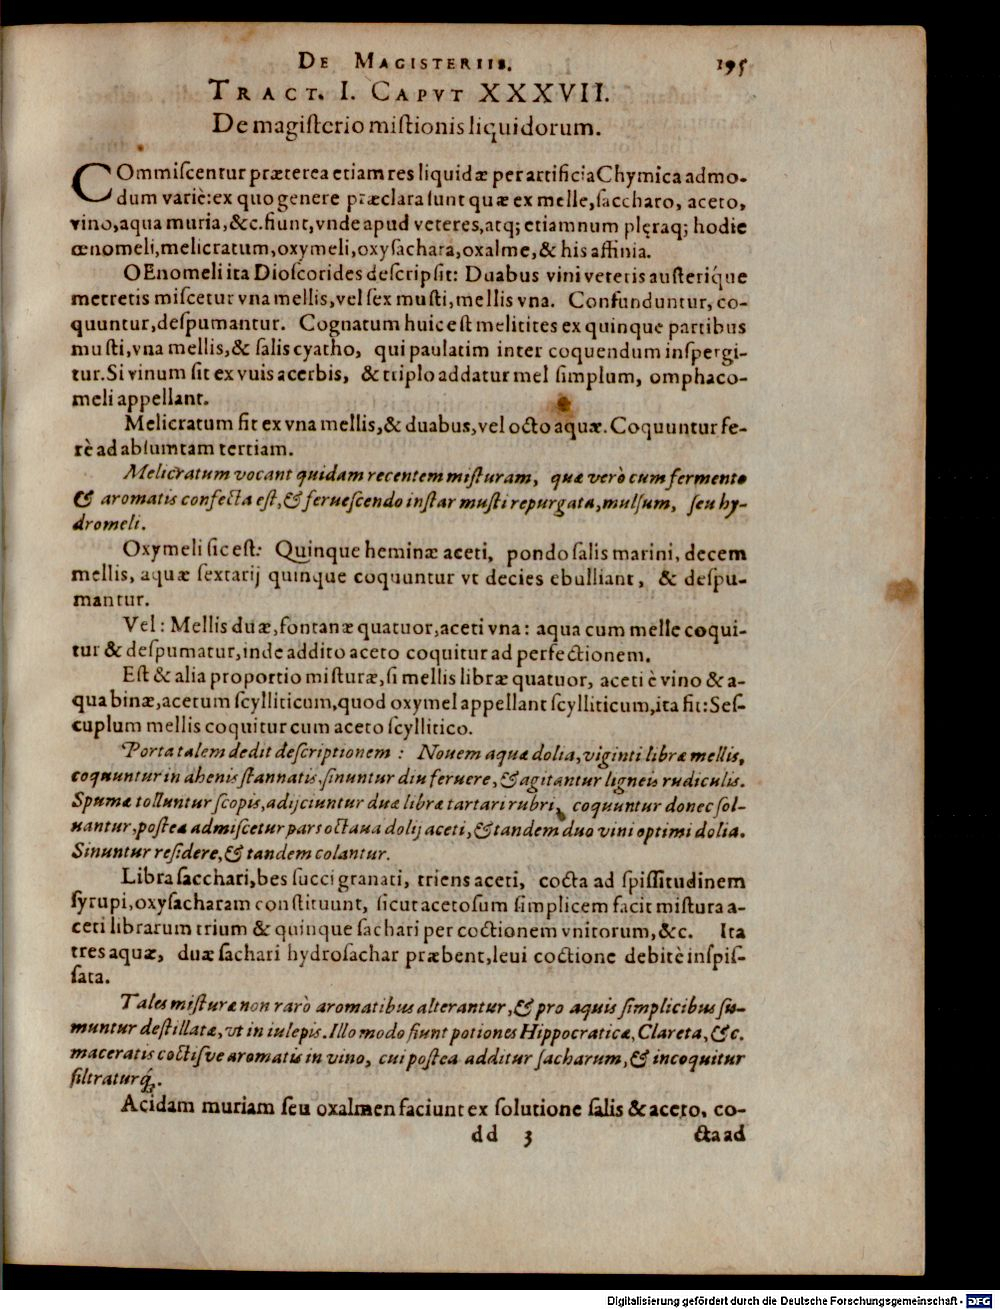 DE MAGISTERIIS. 195
TRACT. I. CAPVT XXXVII.
De magiſterio miſtionis liquidorum.
COmmiſcentur præterea etiam res liquidæ per artificia Chymica admo-
dum variè: ex quo genere præclara ſunt quæ ex melle, ſaccharo, aceto,
vino, aqua muria, &c. fiunt, vnde apud veteres, atq; etiamnum plęraq; hodie
œnomeli, melicratum, oxymeli, oxyſachara, oxalme, & his affinia.
OEnomeli ita Dioſcorides deſcripſit: Duabus vini veteris auſteriq́ue
metretis miſcetur vna mellis, vel ſex muſti, mellis vna. Confunduntur, co-
quuntur, deſpumantur. Cognatum huic eſt melitites ex quinque partibus
muſti, vna mellis, & ſalis cyatho, qui paulatim inter coquendum inſpergi-
tur. Si vinum ſit ex vuis acerbis, & triplo addatur mel ſimplum, omphaco-
meli appellant.
Melicratum fit ex vna mellis, & duabus, vel octo aquæ. Coquuntur fe-
rè ad abſumtam tertiam.
Melicratum vocant quidam recentem miſturam, quæ verò cum fermento
& aromatis confecta eſt, & ferueſcendo inſtar muſti repurgata, mulſum, ſeu hy-
dromeli.
Oxymeli ſic eſt: Quinque heminæ aceti, pondo ſalis marini, decem
mellis, aquæ ſextarij quinque coquuntur vt decies ebulliant, & deſpu-
mantur.
Vel: Mellis duæ, fontanæ quatuor, aceti vna: aqua cum melle coqui-
tur & deſpumatur, inde addito aceto coquitur ad perfectionem.
Eſt & alia proportio miſturæ, ſi mellis libræ quatuor, aceti è vino & a-
qua binæ, acetum ſcylliticum, quod oxymel appellant ſcylliticum, ita fit: Seſ-
cuplum mellis coquitur cum aceto ſcyllitico.
Porta talem dedit deſcriptionem: Nouem aquæ dolia, viginti libræ mellis,
coquuntur in ahenis ſtannatis, ſinuntur diu feruere, & agitantur ligneis rudiculis.
Spumæ tolluntur ſcopis, adijciuntur duæ libræ tartari rubri, coquuntur donec ſol-
uantur, poſtea admiſcetur pars octaua dolij aceti, & tandem duo vini optimi dolia.
Sinuntur reſidere, & tandem colantur.
Libra ſacchari, bes ſucci granati, triens aceti, cocta ad ſpiſſitudinem
ſyrupi, oxyſacharam conſtituunt, ſicut acetoſum ſimplicem facit miſtura a-
ceti librarum trium & quinque ſachari per coctionem vnitorum, &c. Ita
tres aquæ, duæ ſachari hydroſachar præbent, leui coctione debitè inſpiſ-
ſata.
Tales miſturæ non rarò aromatibus alterantur, & pro aquis ſimplicibus ſu-
muntur deſtillatæ, vt in iulepis. Illo modo fiunt potiones Hippocraticæ, Clareta, &c.
maceratis coctiſve aromatis in vino, cui poſtea additur ſacharum, & incoquitur
filtraturq́;.
Acidam muriam ſeu oxalmen faciunt ex ſolutione ſalis & aceto, co-
dd 3 cta ad
Digitalisierung gefördert durch die Deutsche Forschungsgemeinschaft - DFG